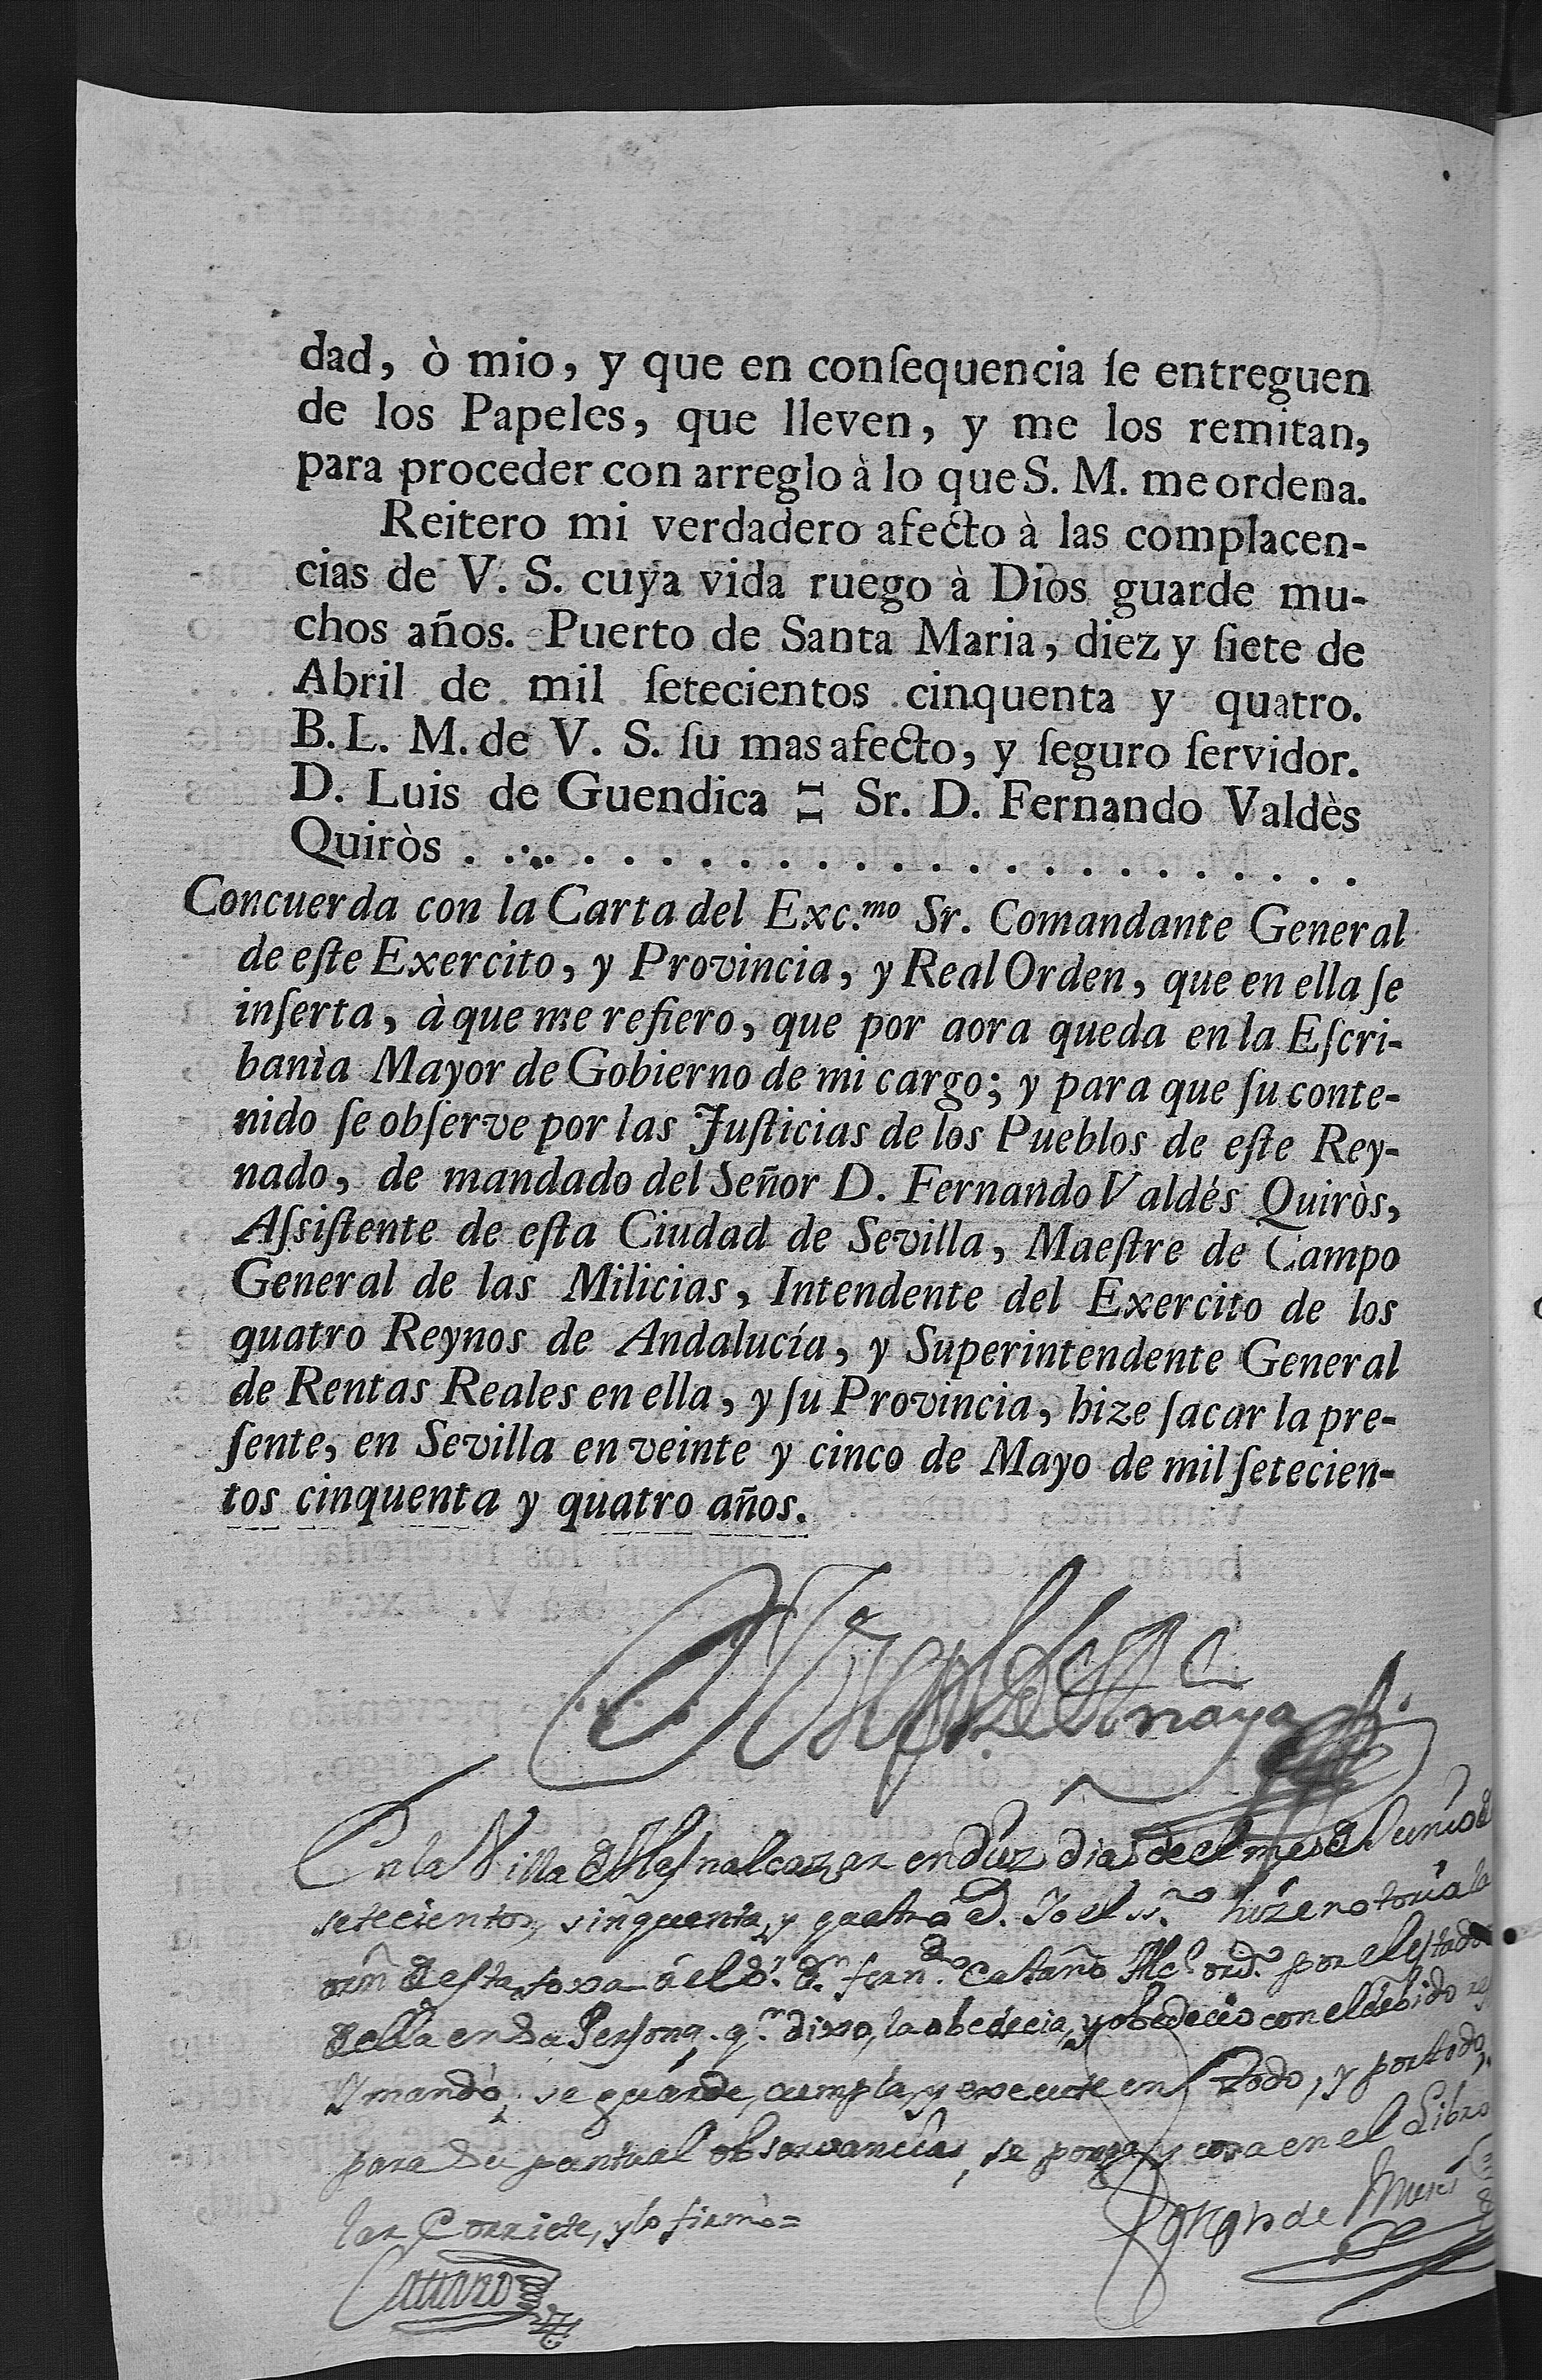 dad, ò mio, y que en conſequencia ſe entreguen
de los Papeles, que lleven, y me los remitan,
para proceder con arreglo à lo que S. M. me ordena.
Reitero mi verdadero afecto à las complacen-
cias de V. S. cuya vida ruego à Dios guarde mu-
chos años. Puerto de Santa Maria, diez y ſiete de
Abril de mil ſetecientos cinquenta y quatro.
B. L. M. de V. S. ſu mas afecto, y ſeguro ſervidor.
D. Luis de Guendica = Sr. D. Fernando Valdès
Quiròs . . . . . . . . . . . . . . . . . . . . . . .
Concuerda con la Carta del Exc.mo Sr. Comandante General
de eſte Exercito, y Provincia, y Real Orden, que en ella ſe
inſerta, à que me refiero, que por aora queda en la Eſcri-
banìa Mayor de Gobierno de mi cargo; y para que ſu conte-
nido ſe obſerve por las Juſticias de los Pueblos de eſte Rey-
nado, de mandado del Señor D. Fernando Valdés Quiròs,
Aſsiſtente de eſta Ciudad de Sevilla, Maeſtre de Campo
General de las Milicias, Intendente del Exercito de los
quatro Reynos de Andalucía, y Superintendente General
de Rentas Reales en ella, y ſu Provincia, hize ſacar la pre-
ſente, en Sevilla en veinte y cinco de Mayo de mil ſetecien-
tos cinquenta y quatro años.
En la Villa de Aſnalcazar en diez dias de el mes de Junio de
setecientos, sinquenta, y quatro a.s Yo el ss.no hize notoria la
orn de esta foxa a el S.r D.n fern.do Cataño Alc.e ord.o por el estado
della en Su Persona, q.n dixo, la obedecia, y obedecio con el debido
Y mandó, se guarde, cumpla, y execute en todo, y por todo,
para Su puntual observancia, se ponga, y cosa en el Libro
lar Corriete, y lo firmó=
Cattaño